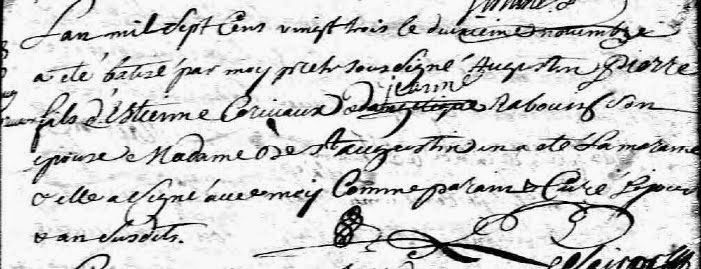 Lan mil sept cens vingt trois le duixieme novembre
a eté batisé par moy pretre soussigné Augustin Pierre
jeanne
fils d'Estienne Corivaux & Rabouin son
epouse Madame de St augustin a eté la maraine
& elle a signé avec moy Comme parain & Curé
& an susdits.